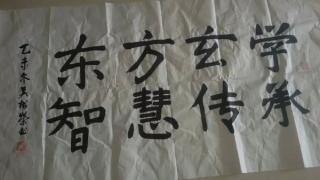 学承
玄传
方慧
东智
乙未冬吴